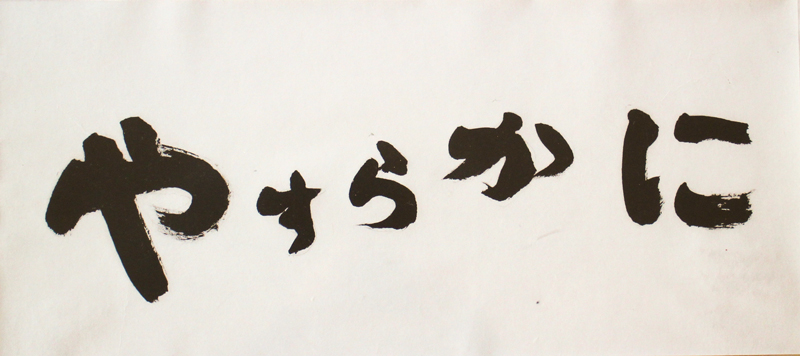 やすらかに